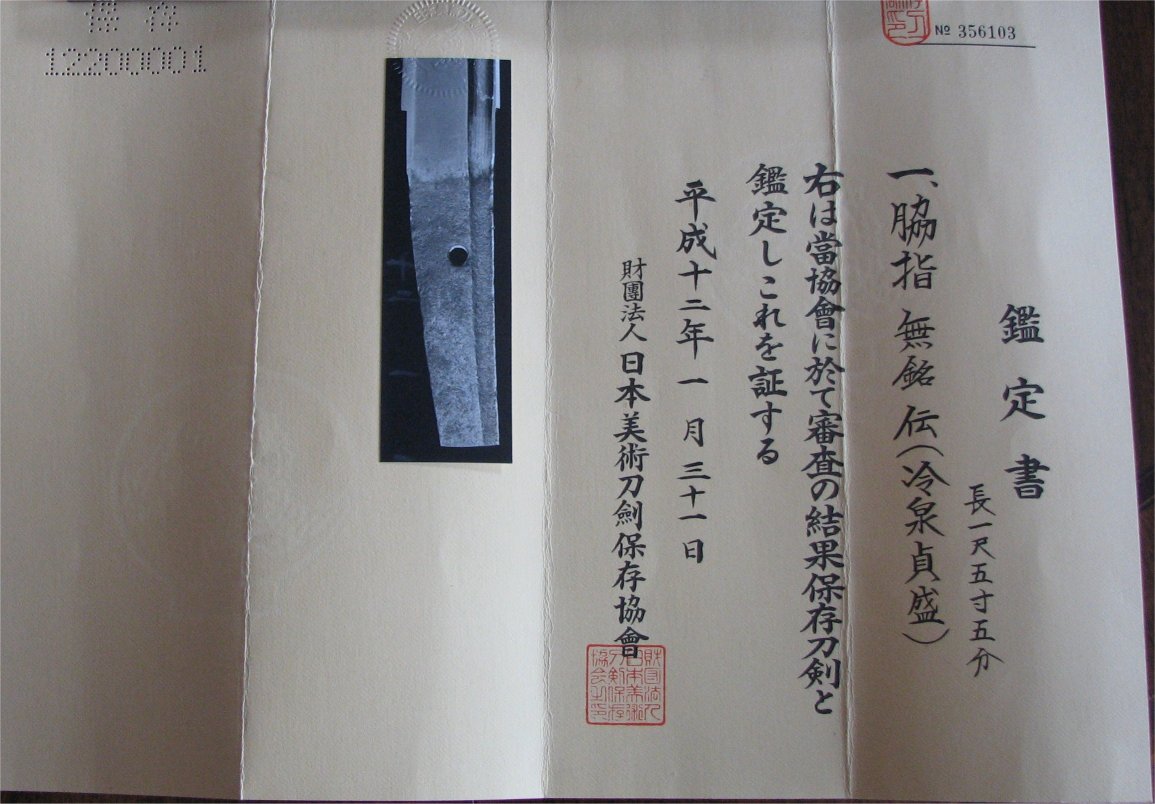 № 356103
鑑定書
長一尺五寸五分
一、脇指 無銘 伝(冷泉貞盛)
右は當協會に於て審査の結果保存刀剣と
鑑定しこれを証する
平成十二年一月三十一日
財團法人 日本美術刀劍保存協會
財団法人
日本美術
刀剣保存
協会之印
保存
12200001